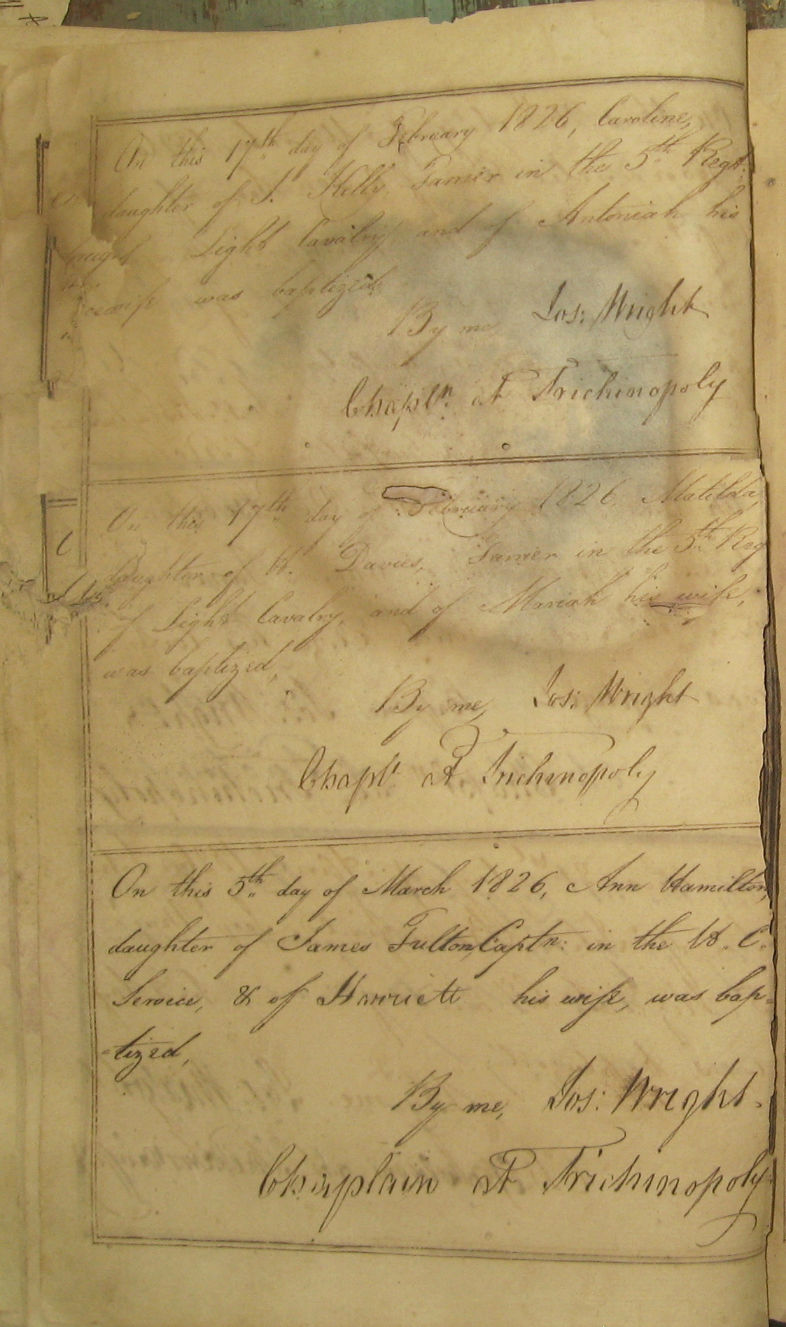 On this 17th day of February 1826, Caroline,
daughter of J. Kelly Farrier in the 5th Regt.
Light Cavalry and of Antoniah his
wife was baptized
By me Jos: Wright
Chapln. at Trichinopoly
On this 17th day of February 1826 Matilda,
daughter of H. Davies, Farrier in the 5th Reg
of Light Cavalry, and of Mariah his wife,
was baptized,
By me, Jos: Wright
Chapln at Trichinopoly
On this 5th day of March 1826, Ann Hamilton,
daughter of James Fulton Captn: in the H. C.
Service, & of Harriett his wife, was bap-
-tized,
By me, Jos: Wright.
Chaplain at Trichinopoly